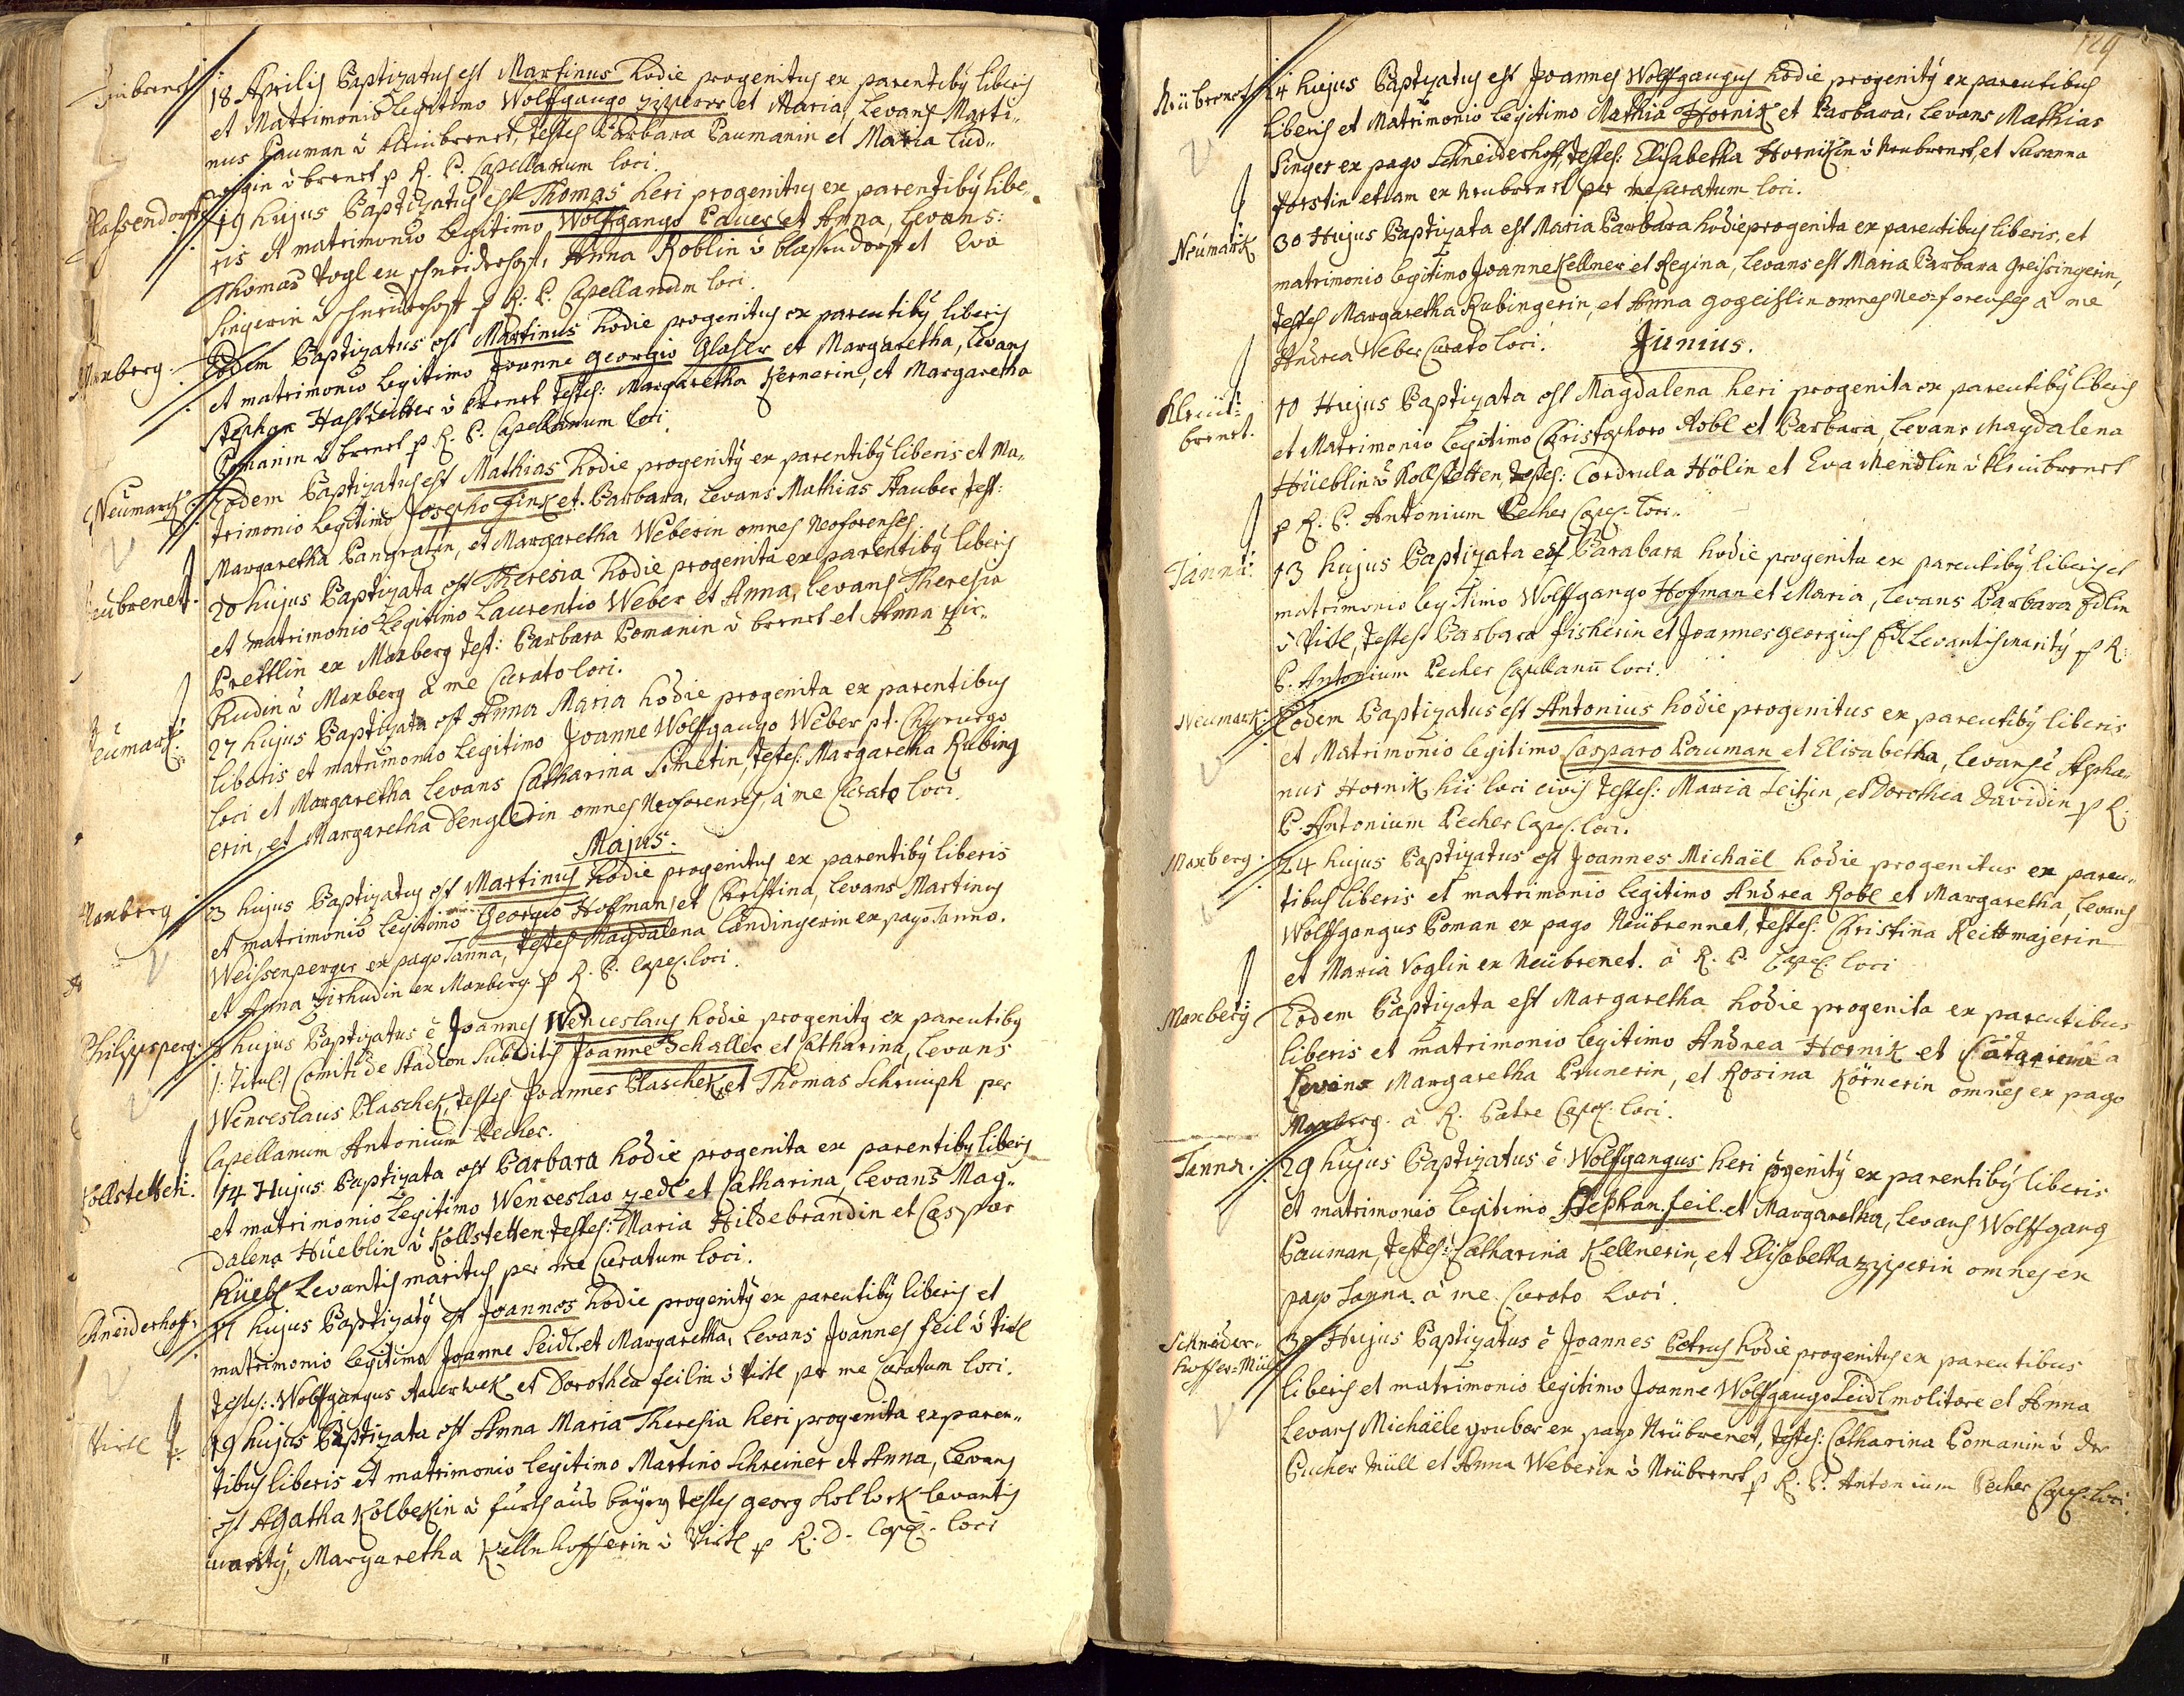 18 Aprilis Baptizatus est Martinus hodie progenitus ex parentibꝰ liberis
et Matrimonio legitimo Wolfgango et Maria, Levans Marti„
nus Pauman testes Barbara Paumanin et Maria Lud„
brenet p R. P. Capellanum loci.
Plassendorf
19 hujus Baptizatus est Thomas heri progenitus ex parentibꝰ libe„
ris et matrimonio legitimo Wolfgango Pauer et Anna, Levans:
Thomas Vogl ex schneiderhof, Anna Roblin ù blassendorf et Eva
Singerin ù schneiderhoff p R: P. Capellanum loci.
Maxberg.
Eodem Baptizatus est Martinus hodie progenitus ex parentibꝰ liberis
et matrimonio legitimo Joanne Georgio Glaser et Margaretha, Levans
Stephan ù brenet testes: Margaretha Kernerin, et Margaretha
Pomanin ù brenet p R. P. Capellanum loci.
Neumark.
Eodem Baptizatus est Mathias hodie progenitꝰ ex parentibꝰ liberis et Ma„
trimonio legitimo Josepho Fink et Barbara, Levans Mathias Stauber test:
Margaretha Pangratzin, et Margaretha Weberin omnes Neoforenses
Neubrenet.
20 hujus Baptizata est Theresia hodie progenita ex parentibꝰ liberis
et matrimonio Legitimo Laurentio Weber et Anna, Levans Theresia
Prettlin ex Maxberg test: Barbara Pomanin ù brenet et Anna Zir„
hudin ù Maxberg à me Curato loci.
Neumark.
27 hujus Baptizata est Anna Maria hodie progenita ex parentibus
liberis et matrimonio legitimo Joanne Wolfgango Weber pt. Chyrurgo
loci et Margaretha Levans Catharina Simetin, testes: Margaretha Rubing
erin, et Margaretha Denglerin omnes Neoforenses, à me Curato loci.
Majus.
Maxberg
3 hujus Baptizatus est Martinus hodie progenitus ex parentibꝰ liberis
et matrimonio legitimo Georgio Hoffman, et Christina, Levans Martinus
Weissenperger ex pago Tanna, testes Magdalena Landingerin ex pago Tanna.
et Anna Zirhudin ex Maxberg p R. P. Capel. loci.
Philippsperg.
hujus Baptizatus ē Joannes Wenceslaus hodie progenitꝰ ex parentibꝰ
/: Titul:/ Comiti de Stadion Subditis Joanne Schaller et Catharina, Levans
Wenceslaus Plaschek, testes Joannes Plaschek, et Thomas Schrimph per
Capellanum Antonium Pecher.
Kollstetten.
14 Hujus Baptizata est Barbara hodie progenita ex parentibꝰ liberis
et matrimonio legitimo Wenceslao Zedl et Catharina, Levans Mag„
dalena Hüeblin ù Kollstetten testes: Maria Hildebrandin et Caspar
Hüebl Levantis maritus per me Curatum loci.
Schneiderhof.
17 hujus Baptizatꝰ est Joannes hodie progenitꝰ ex parentibꝰ liberis et
matrimonio legitimo Joanne Seidl et Margaretha, Levans Joannes Feil ù Vitl
testes: Wolfgangus Auerwek et Dorothea Feilin ù Vitl per me Curatum loci.
Vitl
19 hujus Baptizata est Anna Maria Theresia heri progenita ex paren„
tibus liberis et matrimonio legitimo Martino Schreiner et Anna, Levans
est Agatha Kolbekin ù furth aus bayrn testes georg Kolbek levantis
maritꝰ, Margaretha Kellnhofferin ù Vitl p R. D. Capel. loci
129
Neübrenet
24 hujus Baptizatus est Joannes Wolffgangus hodie progenitꝰ ex parentibus
liberis et Matrimonio legitimo Mathia Hornik et Barbara, Levans Mathias
Singer ex pago Schneiderhoff, testes: Elisabetha Hornikin ù Neubrenet, et Susanna
forstin etiam ex Neubrenet per me Curatum loci.
Neumark
30 Hujus Baptizata est Maria Barbara hodie progenita ex parentibus liberis, et
matrimonio legitimo Joanne Kellner et Regina, Levans est Maria Barbara Greissingerin,
testes Margaretha Rubingerin, et Anna Gogeislin omnes Neo-forenses à me
Andrea Weber Curato loci.
Junius.
Kleinbrenet.
10 Hujus Baptizata est Magdalena heri progenita ex parentibꝰ liberis
et Matrimonio legitimo Christophoro Robl et Barbara, Levans Magdalena
Hüeblin ù Kollstetten, testes: Cordula Hölin et Eva Mendlin ù Kleinbrenet
p R. P. Antonium Pecher Capel. loci.
Tanna.
13 hujus Baptizata est Barabara hodie progenita ex parentibꝰ liberis et
matrimonio legitimo Wolffgango Hofman et Maria, Levans Barbara Edlin
ù Vitl, testes: Barbara fisherin et Joannes georgius Edl Levantis maritꝰ p R:
P. Antonium Pecher Capellanū loci.
Neumark.
Eodem Baptizatus est Antonius hodie progenitus ex parentibꝰ liberis
et Matrimonio legitimo Casparo Pauman et Elisabetha, Levans ē Stepha„
nus Hornik, hic loci civis testes: Maria Seitzin, et Dorothea Davidin p R:
P. Antonium Pecher Capel. loci.
Maxberg.
24 hujus Baptizatus est Joannes Michaël hodie progenitus ex paren„
tibus liberis et matrimonio legitimo Andrea Robl et Margaretha, Levans
Wolffgangus Poman ex pago Neübrennet, testes: Christina Reittmajerin
et Maria Voglin ex Neübrenet. à R. P. Capel. loci
Maxberg
Eodem Baptizata est Margaretha hodie progenita ex parentibus
liberis et matrimonio legitimo Andrea Hornik et
Levans Margaretha Prunerin, et Rosina Körnerin omnes ex pago
Maxberg. à R. Patre Capel. loci.
Tanna.
29 hujus Baptizatus ē Wolffgangus heri progenitꝰ ex parentibꝰ liberis
et matrimonio legitimo Stephan. feil. et Margaretha, Levans Wolffgang
Pauman, testes: Catharina Kellnerin, et Elisabetha Zipperin omnes ex
pago Tanna. à me Curato Loci.
Schneider
hoffer-Mül
30 Hujus Baptizatus ē Joannes Petrus hodie progenitus ex parentibus
liberis et matrimonio legitimo Joanne Wolffgango Seidl molitore et Anna
Levans Michaële gruber ex pago Neübrenet, testes: Catharina Pomanin ù der
Pucher Müll et Anna Weberin ù Neübrenet p R. P. Antonium Pecher Capel. loci.